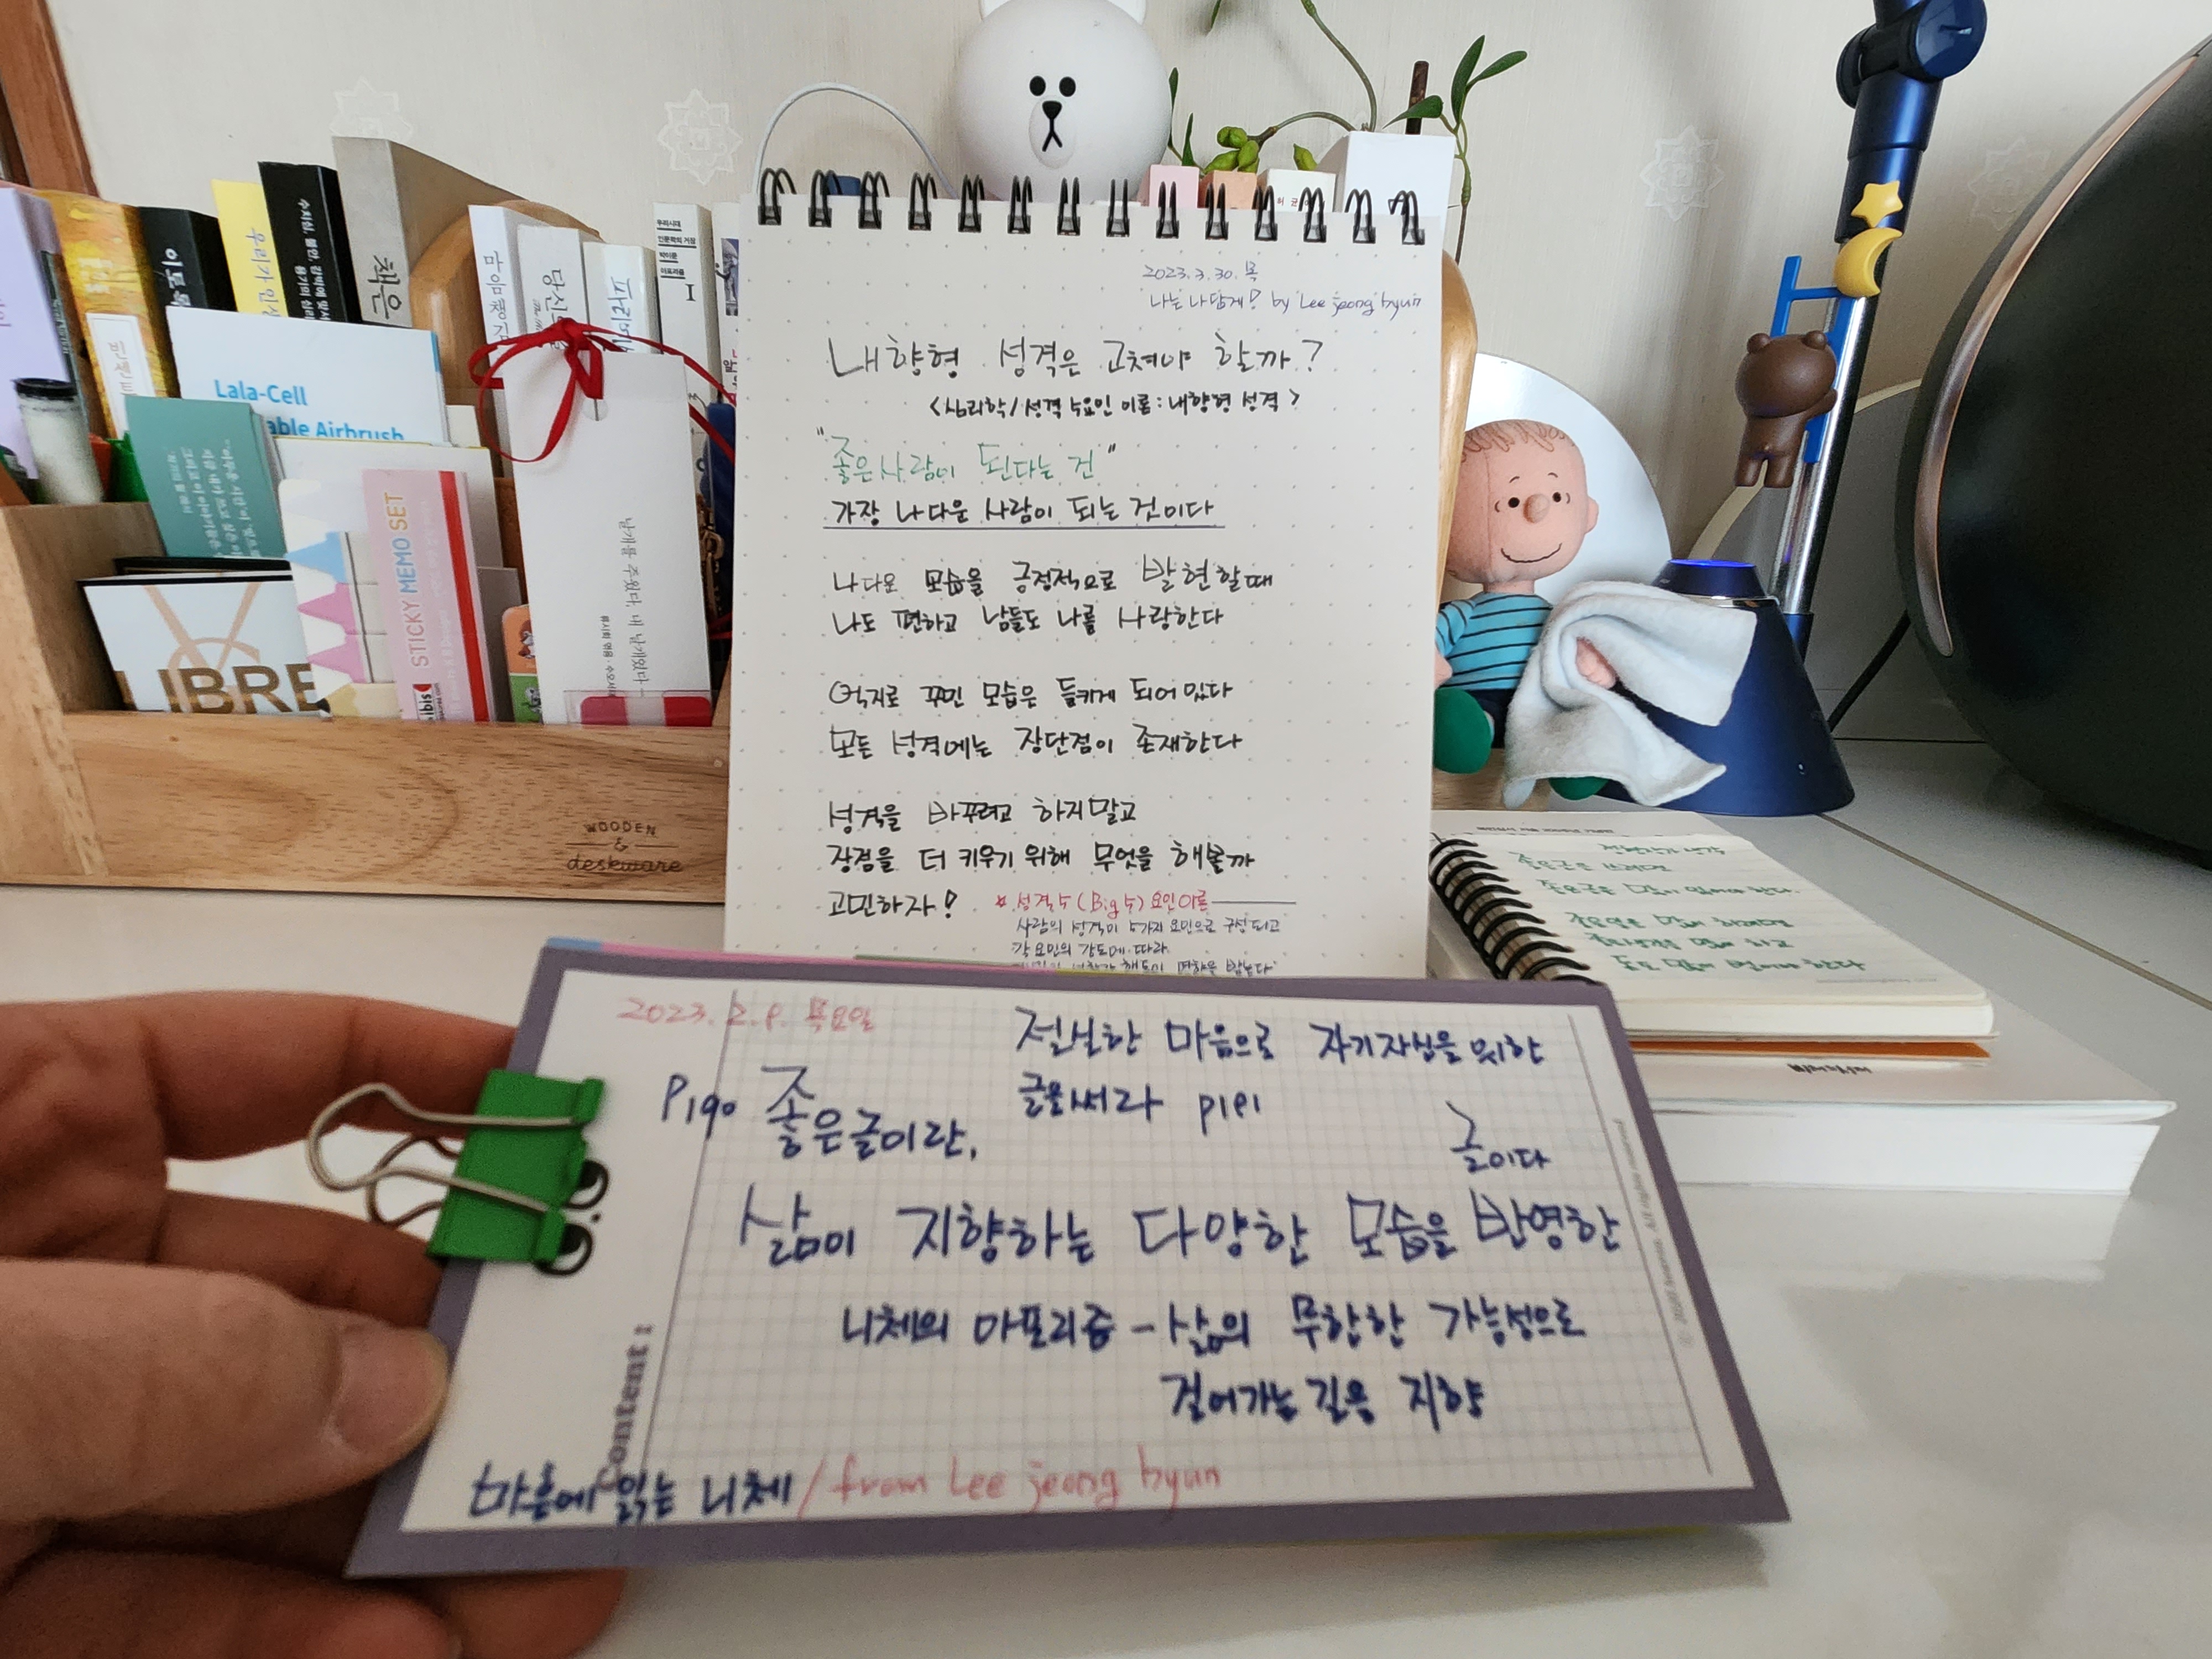 2023.3.30. 목
나는 나답게! by Lee jeong hyun
내향형 성격은 고쳐야 할까?
<심리학/성격 5요인 이론:내향형 성격>
"좋은사람이 된다는 건"
가장 나다운 사람이 되는 것이다
나다운 모습을 긍정적으로 발현할때
나도 편하고 남들도 나를 사랑한다
억지로 꾸민 모습은 들키게 되어있다
모든 성격에는 장단점이 존재한다
성격을 바꾸려고 하지말고
장점을 더 키우기 위해 무엇을 해볼까
고민하자!
* 성격5 (Big 5) 요인이론
사람의 성격이 5가지 요인으로 구성되고
각 요인의 강도에 따라
2023. 2. 9. 목요일
절실한 마음으로 자기자신을 위한
글을써라 P191
P190 좋은글이란,
삶이 지향하는 다양한 모습을 반영한
글이다
니체의 아포리즘 - 삶의 무한한 가능성으로
걸어가는 길을 지향
마흔에 읽는 니체 / from Lee jeong hyun
Content :
Lala-Cell
able Airbrush
STICKY MEMO SET
LIBRE
WOODEN
&
deskware
책은
우리가 인상
날개를 주웠다, 내 날개였다
우리시대
인문학의 거장
박이문
아포리즘
I
좋은글을 쓰려면